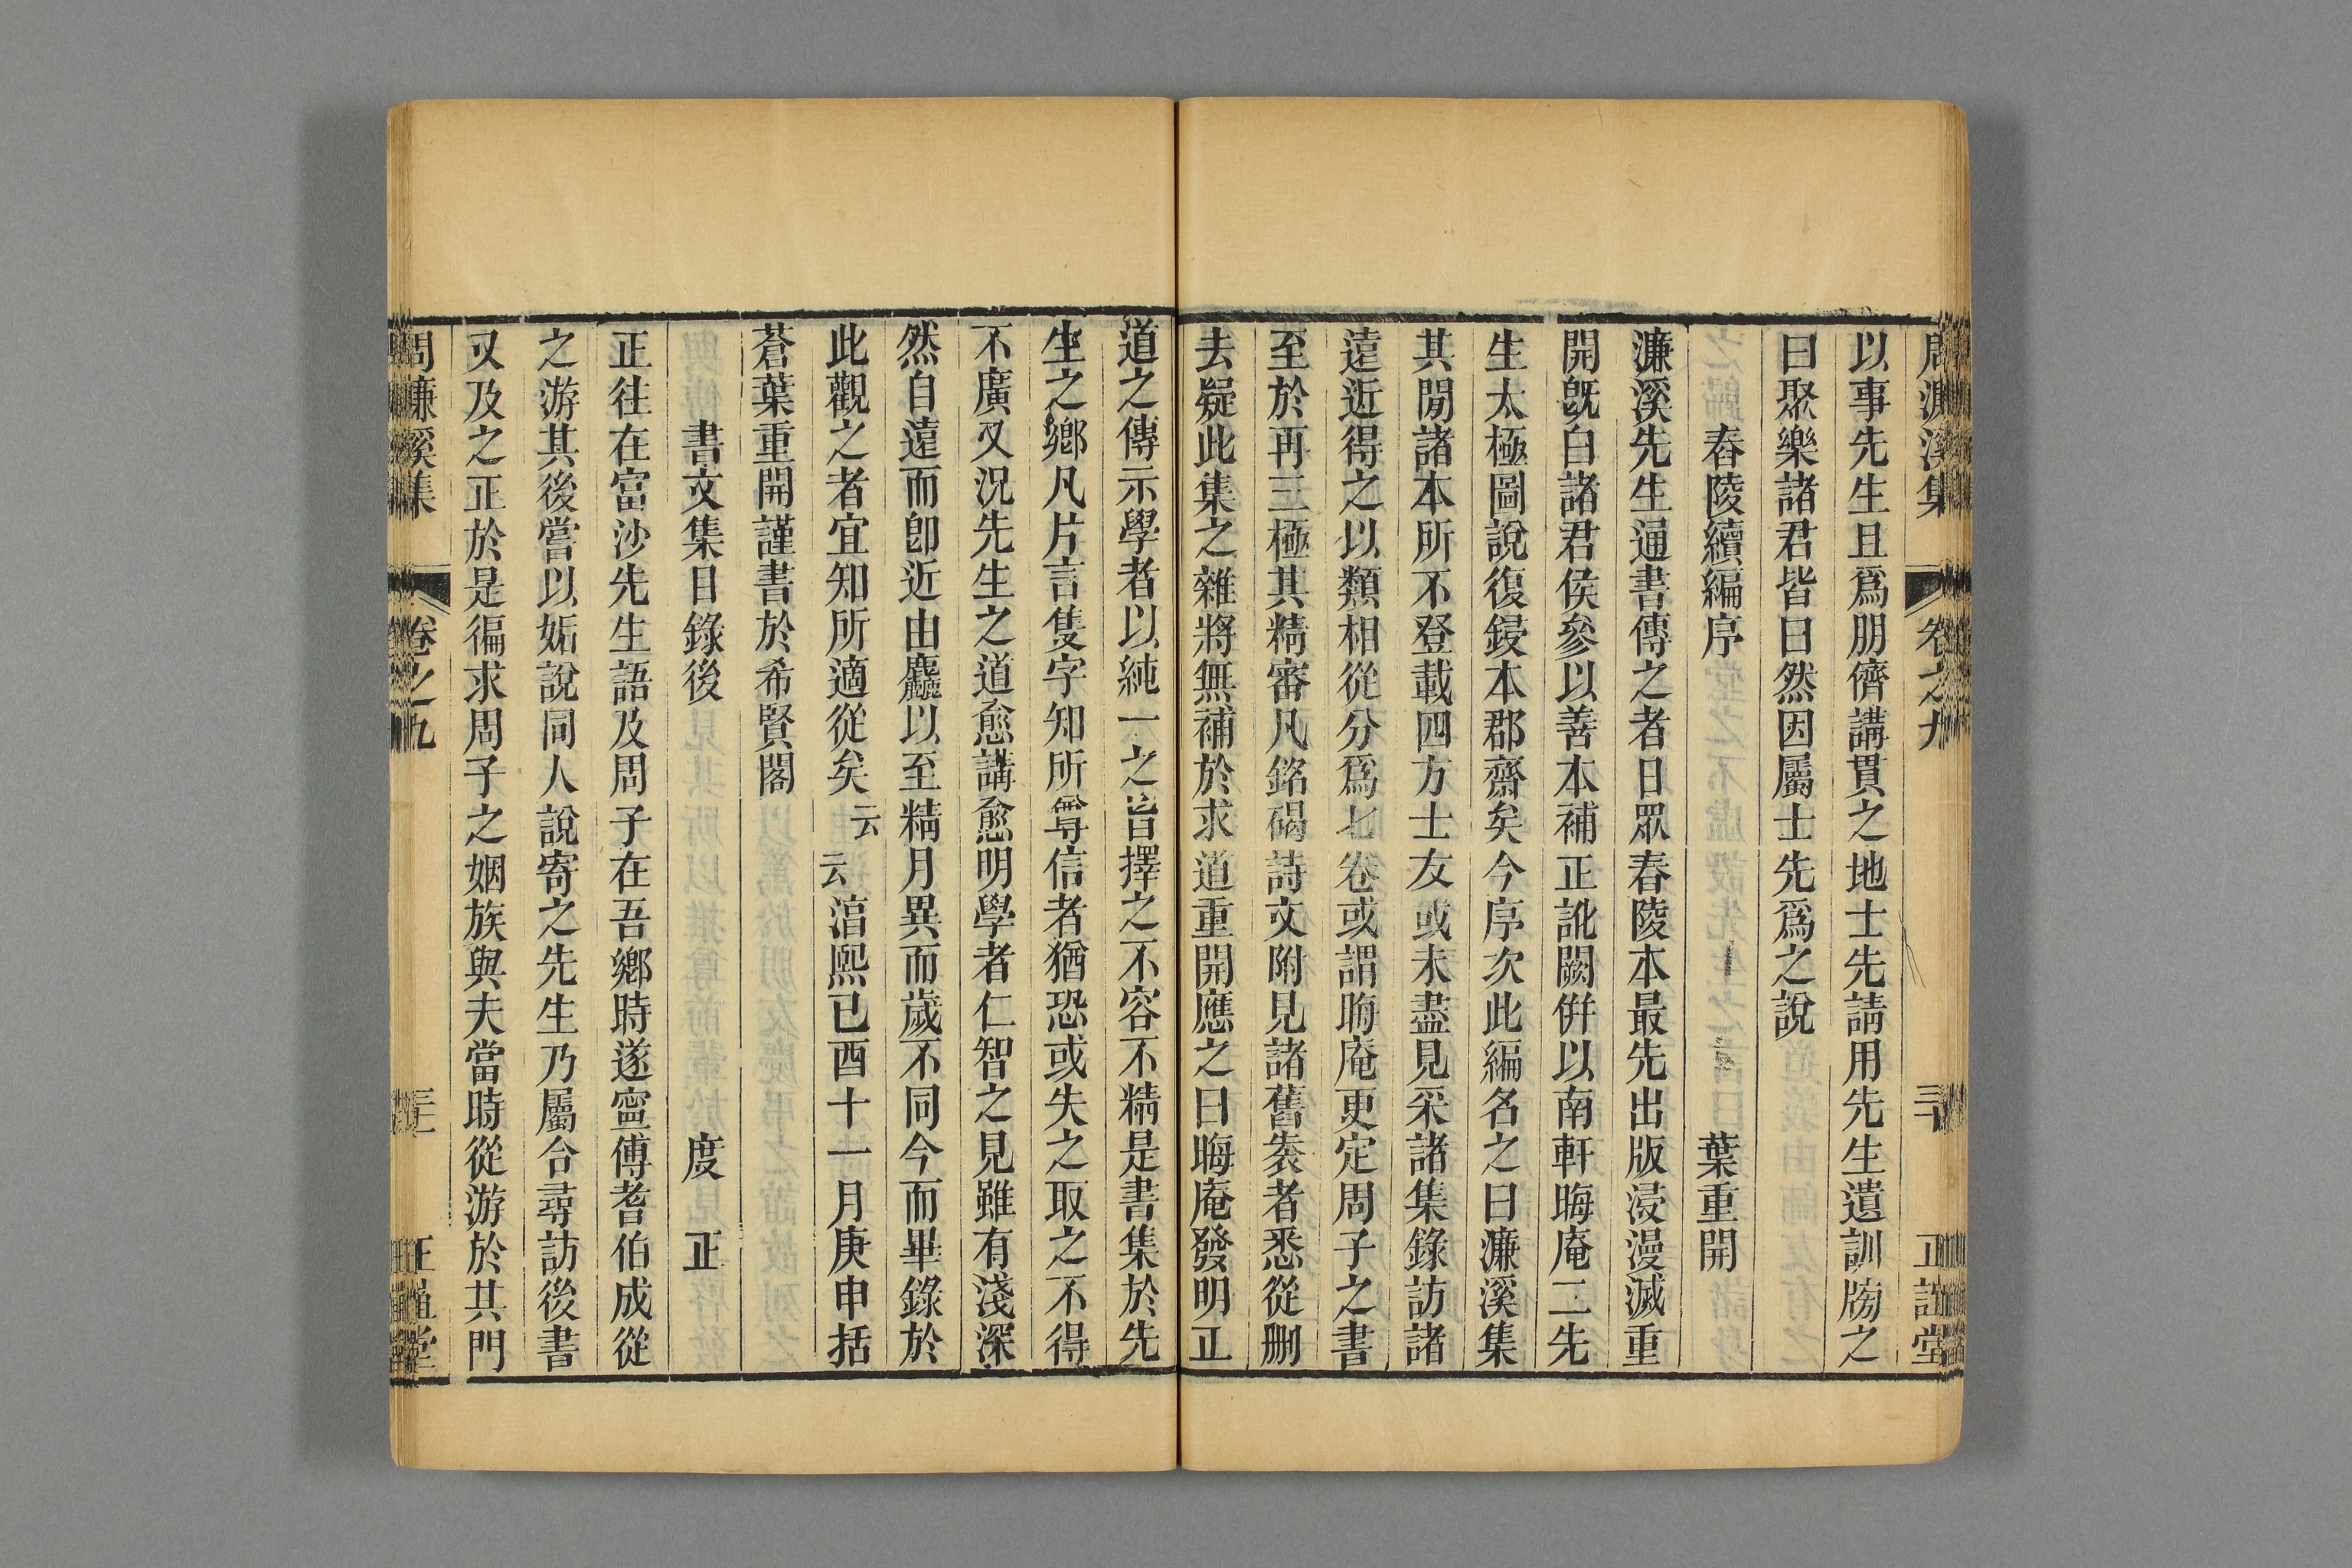 周濂溪集 卷之九 三十 正誼堂
以事先生且爲朋儕講貫之地士先請用先生遺訓牓之
曰聚樂諸君皆曰然因屬士先爲之說
春陵續編序 葉重開
濂溪先生通書傳之者日眾春陵本最先出版浸漫滅重
開旣白諸君侯參以善本補正訛闕併以南軒晦庵二先
生太極圖說復鋟本郡齋矣今序次此編名之曰濂溪集
其閒諸本所不登載四方士友或未盡見采諸集錄訪諸
遠近得之以類相從分爲七卷或謂晦庵更定周子之書
至於再三極其精審凡銘碣詩文附見諸舊袠者悉從刪
去疑此集之雜將無補於求道重開應之曰晦庵發明正
道之傳示學者以純一之旨擇之不容不精是書集於先
生之鄉凡片言隻字知所尊信者猶恐或失之取之不得
不廣又況先生之道愈講愈明學者仁智之見雖有淺深
然自遠而卽近由麤以至精月異而歲不同今而畢錄於
此觀之者宜知所適從矣云云淳熙已酉十一月庚申括
蒼葉重開謹書於希賢閣
書文集目錄後 度正
正往在富沙先生語及周子在吾鄉時遂寧傅耆伯成從
之游其後嘗以姤說同人說寄之先生乃屬令尋訪後書
又及之正於是徧求周子之姻族與夫當時從游於其門
周濂溪集 卷之九 三十一 正誼堂